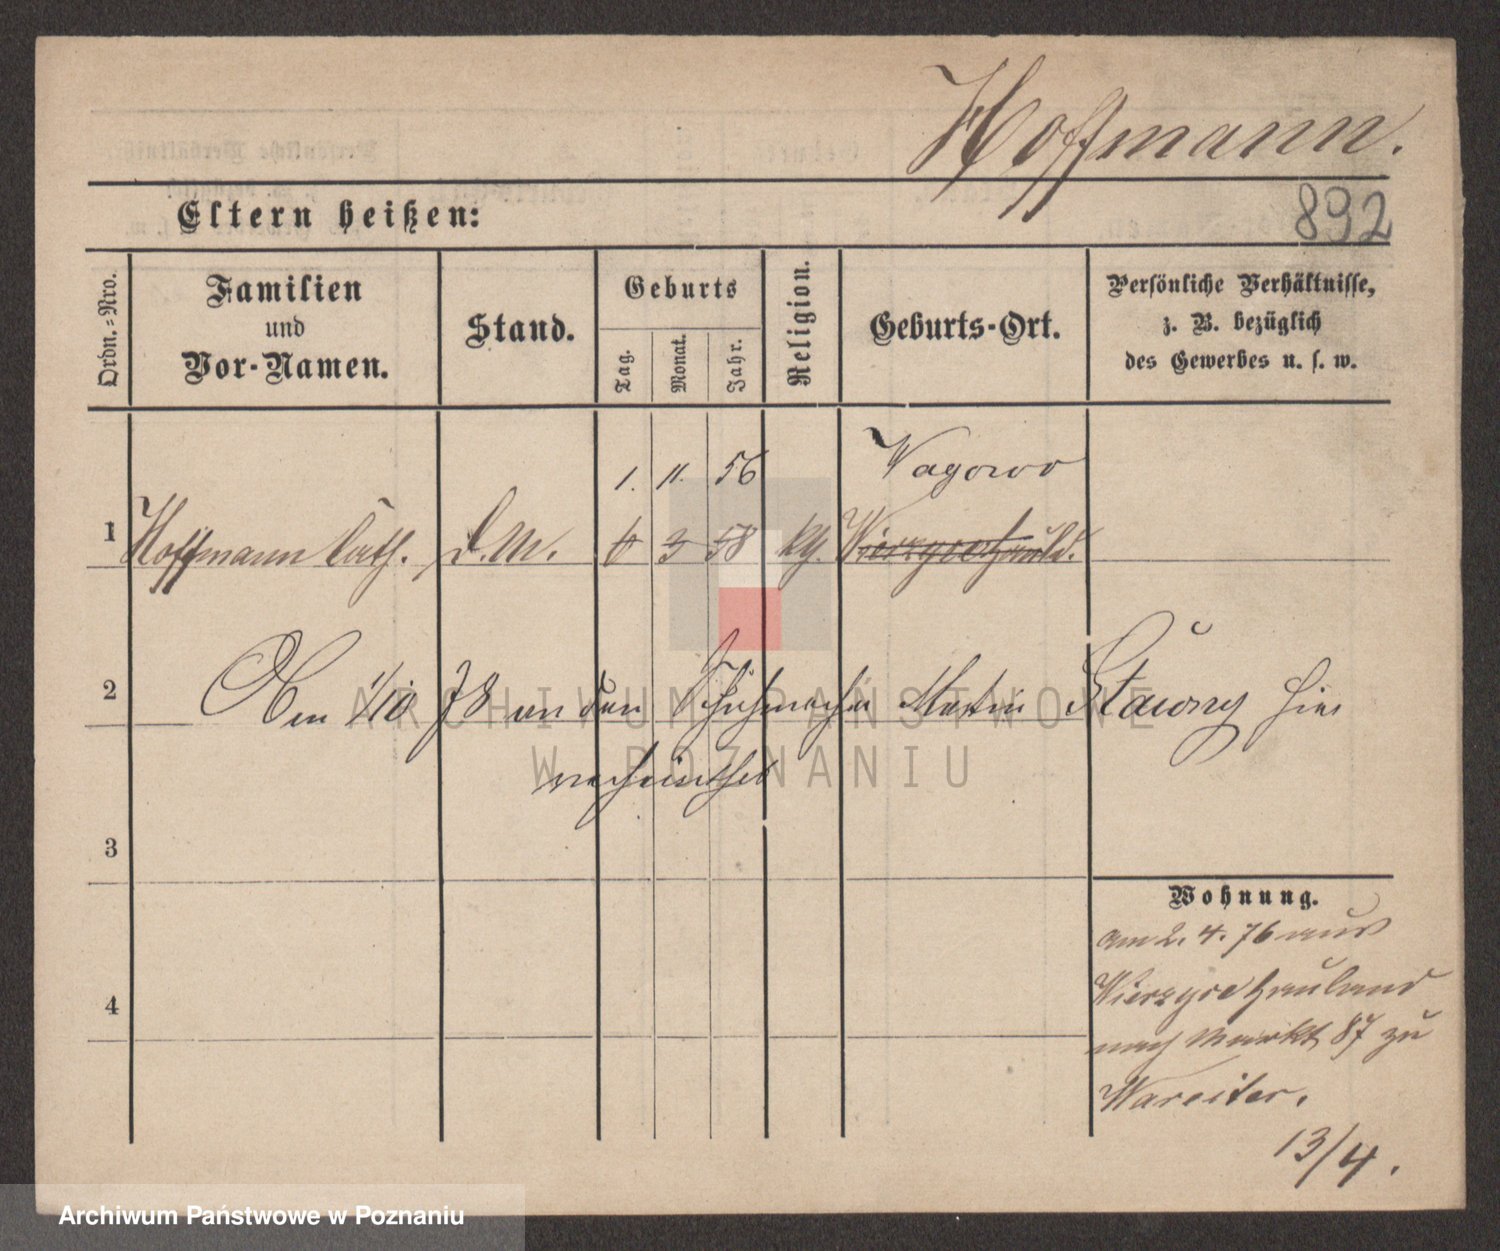 Hoffmann.
892
Eltern heißen:
Ordn.=Nro.
Familien
und
Vor-Namen.
Stand.
Geburts
Tag.
Monat.
Jahr.
Religion.
Geburts-Ort.
Persönliche Verhältnisse,
z. B. bezüglich
des Gewerbes u. s. w.
1. 11. 56 Wagowo
1 Hoffmann Cath. D.M. 6 3 58 kth.
2
Am 1/10 78 an den Schuhmacher Martin Stawny hier
verheirathet
3
Wohnung.
am 2. 4. 76 aus
Hauland
4
nach Markt 87 zu
13/4.
ARCHIWUM PAŃSTWOWE
W POZNANIU
Archiwum Państwowe w Poznaniu